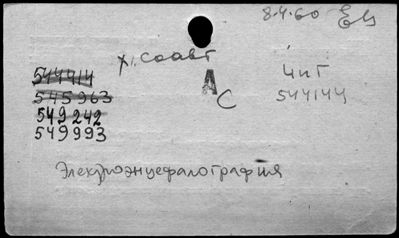 8.4.60
х. соавт
А
С
Чит
544144
544414
545963
549242
549993
Электроэнцефалография